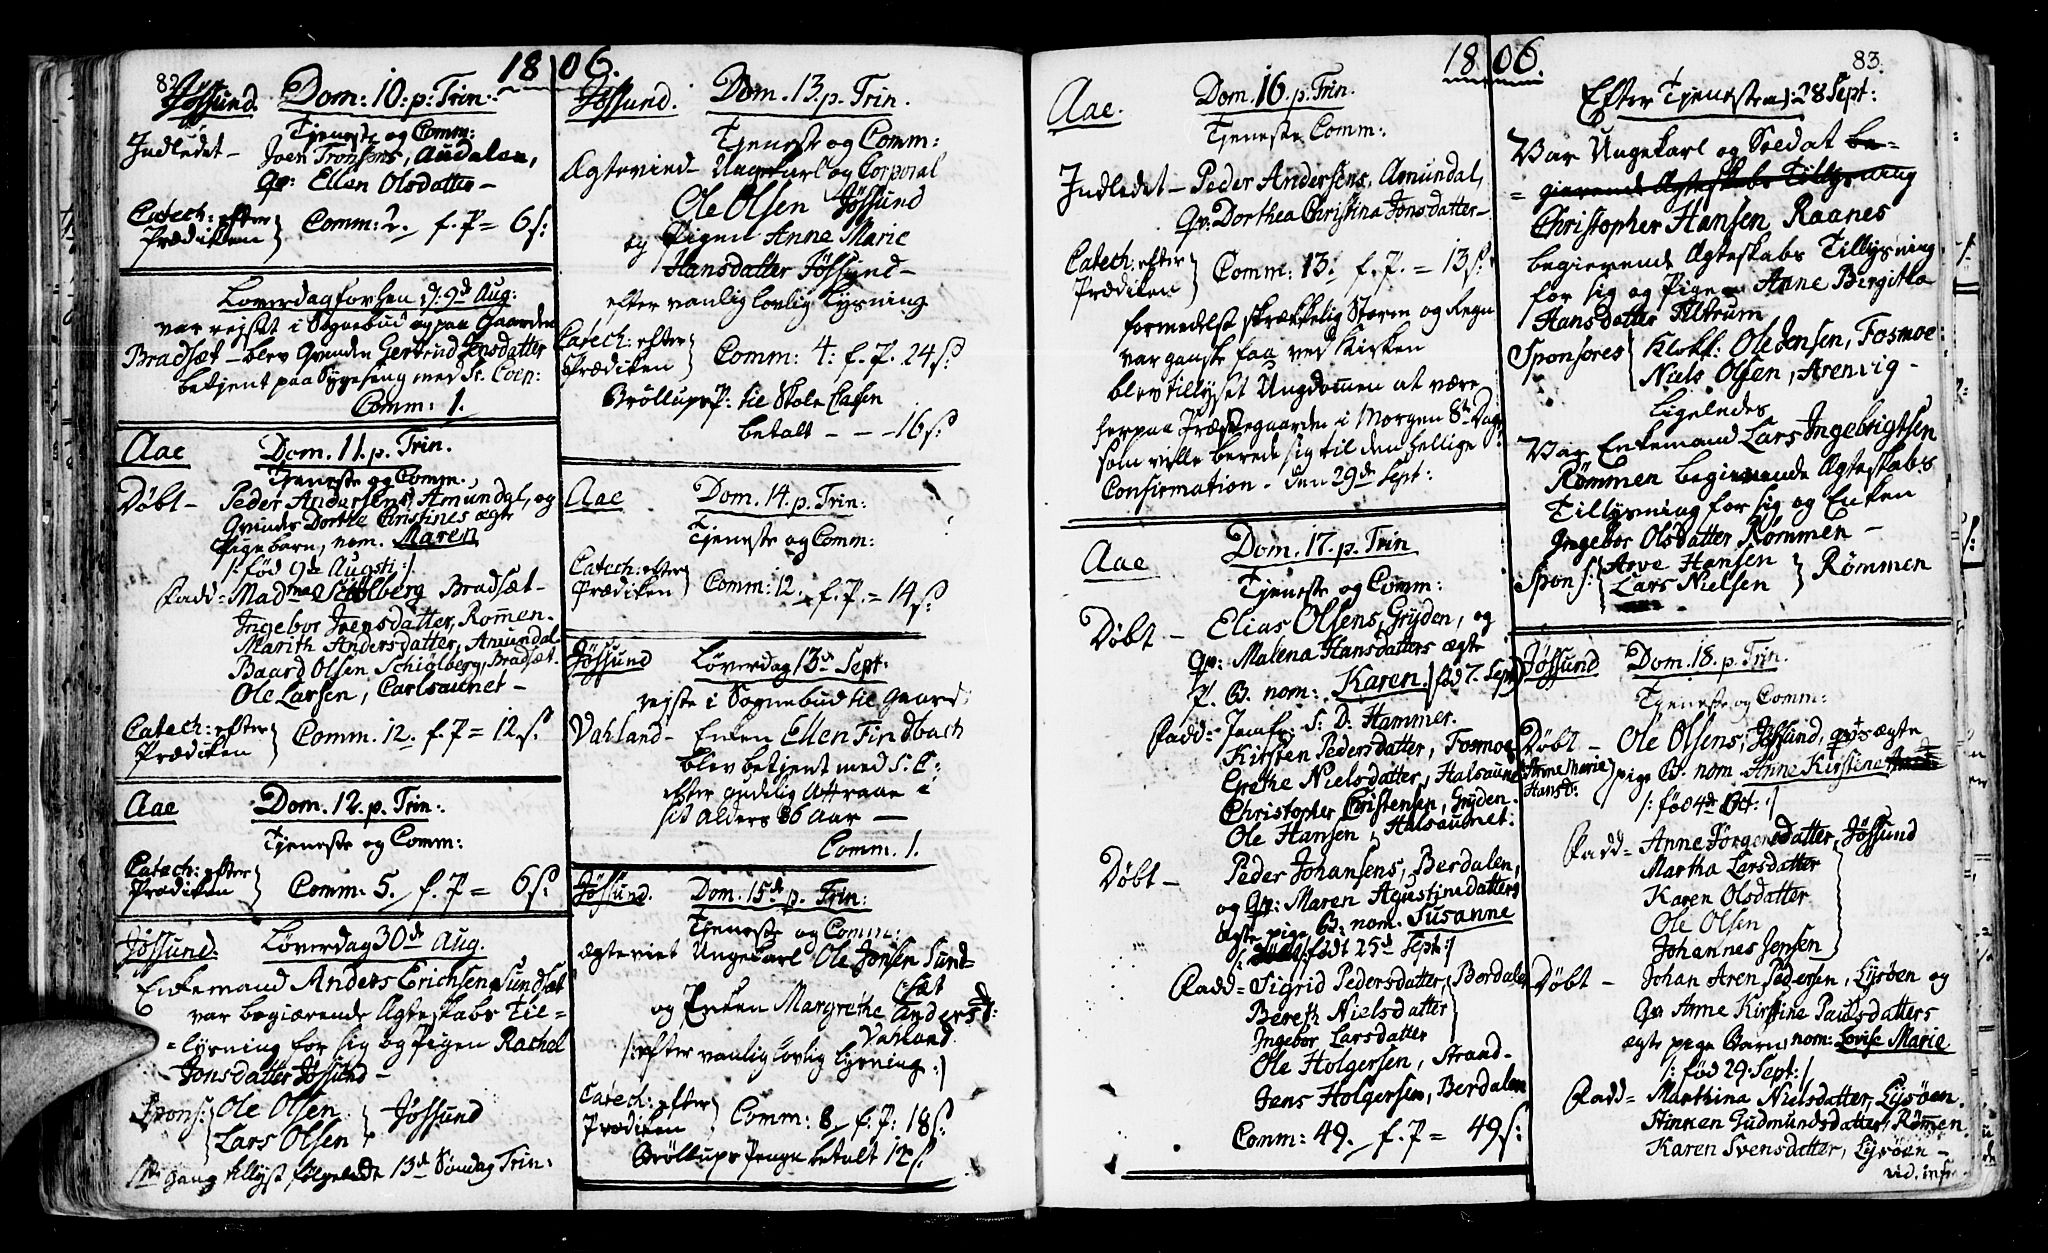 82.
1806.
Jössund. Dom: 10: p: Trin:
Tjeneste og Comm:
Indledet - Joen Tronsens, Audalen,
Qv: Ellen Olsdatter -
Catech: efter Prædiken } Comm: 2. f. P = 6 s:
Löverdag forhen d: 9d Aug:
var rejst i Sognebud og paa Gaarden
Bradsæt - blev Qvinden Gertrud Jensdatter
betjent paa Sygeseng med Sr. Coen:
Comm: 1.
Aae Dom. 11. p. Trin.
Tjeneste og Comm.
Döbt - Peder Andersens, Amundal, og
Qvindes Dorthe Christines ægte
Pigebarn, nom. Maren
/: fød 9de Augsti :/
Fadd = Madme Schiölberg Bradsæt -
Ingebor Jvensdatter, Rømen.
Marith Andersdatter, Amundal
Baard Olsen Schiölberg, Bradsæt.
Ole Larsen, Carlsaunet -
Catech: efter Prædiken } Comm. 12. f. P = 12 s:
Aae Dom. 12. p. Trin:
Tjeneste og Comm:
Catech: efter Prædiken } Comm: 5. f. P = 6 s:
Jössund. Löverdag 30de Aug.
Enkemand Anders Erichsen Sundsæt
var begiærende Ægteskabs Til=
=lysning for sig og Pigen Rachel
Jonsdatter Jössund -
Spons: { Ole Olsen
Lars Olsen } Jössund
1ste Gang tillyst følgende 13d Søndag Trin:
Jössund. Dom. 13. p. Trin.
Tjeneste og Comm:
Ægtevied - Ungekarl og Corporal
Ole Olsen Jössund
og Pigen Anne Marie
Hansdatter Jössund -
efter vanlig lovlig Lysning
Catech: efter Prædiken } Comm: 4: f. P. 24 s:
Bröllups P: til Skole Cassen
betalt - - - 16 s:
Aae Dom. 14. p. Trin:
Tjeneste og Comm:
Catech: efter Prædiken } Comm: 12. f. P. = 14 s:
Jössund Löverdag 13d Sept:
rejste i Sognebud til Gaard:
Vahland - Enken Ellen Findbach
blev betjent med S. C:
efter gudelig Attraae i
sit Alders 86 Aar -
Comm. 1.
Jössund. Dom. 15de p. Trin:
Tjeneste og Comm:
Ægteviet Ungekarl Ole Jonsen Sund-
sæt
og Enken Margrethe Andersd:
Vahland.
/: efter vanlig lovlig lysning :/
Catech: efter Prædiken } Comm: 8. f. P: 18 s:
Bröllups Penge betalt 12 s.
1806.
83.
Aae. Dom. 16. p. Trin.
Tjeneste Comm:
Indledet - Peder Andersens, Amundal,
Qv: Dorthea Christina Jonsdatter -
Catech: efter Prædiken } Comm: 13. f. P. = 13 s:
formedelst skrækkelig Storm og Regn
var ganske faa ved Kirken
blev tillyset Ungdommen at være
her paa Præstegaarden i Morgen 8te Dage
som ville berede sig til den hellige
Confirmation - den 29de Sept:
Aae Dom. 17. p. Trin
Tjeneste og Comm:
Döbt - Elias Olsens, Gryden, og
Qv: Malena Hansdatters ægte
P. B. nom: Karen. / fød 7. Sept: /
Fadd: Jomfr: S: D: Hammer.
Kirsten Pedersdatter, Fosmoe
Grethe Nielsdatter, Halsaunet
Christopher Christensen, Gryden.
Ole Hansen, Halsaunet:
Döbt - Peder Johansens, Berdalen,
og Qv: Maren Agustinidatters
Ægte pige B: nom. Susanne
/: født 25d Sept: /
Fadd = Sigrid Pedersdatter, Berdalen
Bereth Nielsdatter
Ingebor Larsdatter
Ole Holgersen, Strand -
Jens Holgersen, Berdalen
Comm: 49. f. P = 49 s:
Efter Tjenesten d: 28 Sept:
Var Ungekarl og Soldat be=
=gierende Ægteskabs Tillysning
Christopher Hansen Raanes
begierende Ægteskabs Tillysning
for sig og Pigen Anne Bergitha
Hansdatter Altrum
Sponsores { Klokk: Ole Jensen, Fosmoe:
Niels Olsen, Arenvig -
Ligeledes
Var Enkemand Lars Ingebrigtsen
Rømmen begierende Ægteskabs
Tillysning for sig og Enken
Ingebor Olsdatter Rømmen -
Spons: { Arve Hansen
Lars Nielsen } Rømmen
Jössund Dom. 18. p. Trin.
Tjeneste og Comm:
Döbt - Ole Olsens, Jössund, qv:s ægte
Anne Marie Hansd: } pige B. nom Anne Kirstine
/: fød 4de Oct: /
Fadd = Anne Jörgensdatter, Jössund
Martha Larsdatter
Karen Olsdatter
Ole Olsen
Johannes Jensen
Döbt - Johan Aren Pedersen, Lysøen og
Qv. Anne Kirstine Paulsdatters
ægte pige Barn, nom: Lovise Marie
/: fød 29. Sept: /
Fadd = Marthina Nielsdatter, Lysøen.
Stinken Gudmundsdatter, Römen.
Karen Svensdatter, Lysøen -
vid. infr